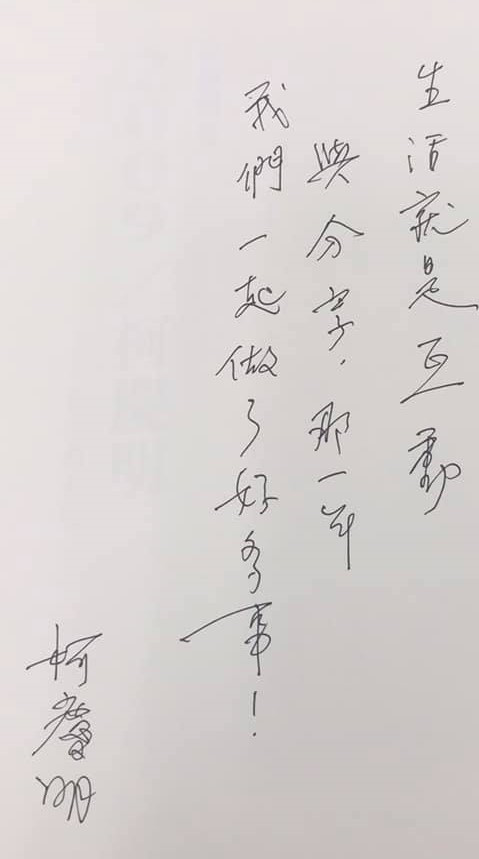 生活就是互動
與分享，那一年
我們一起做了好多事！
柯慶明